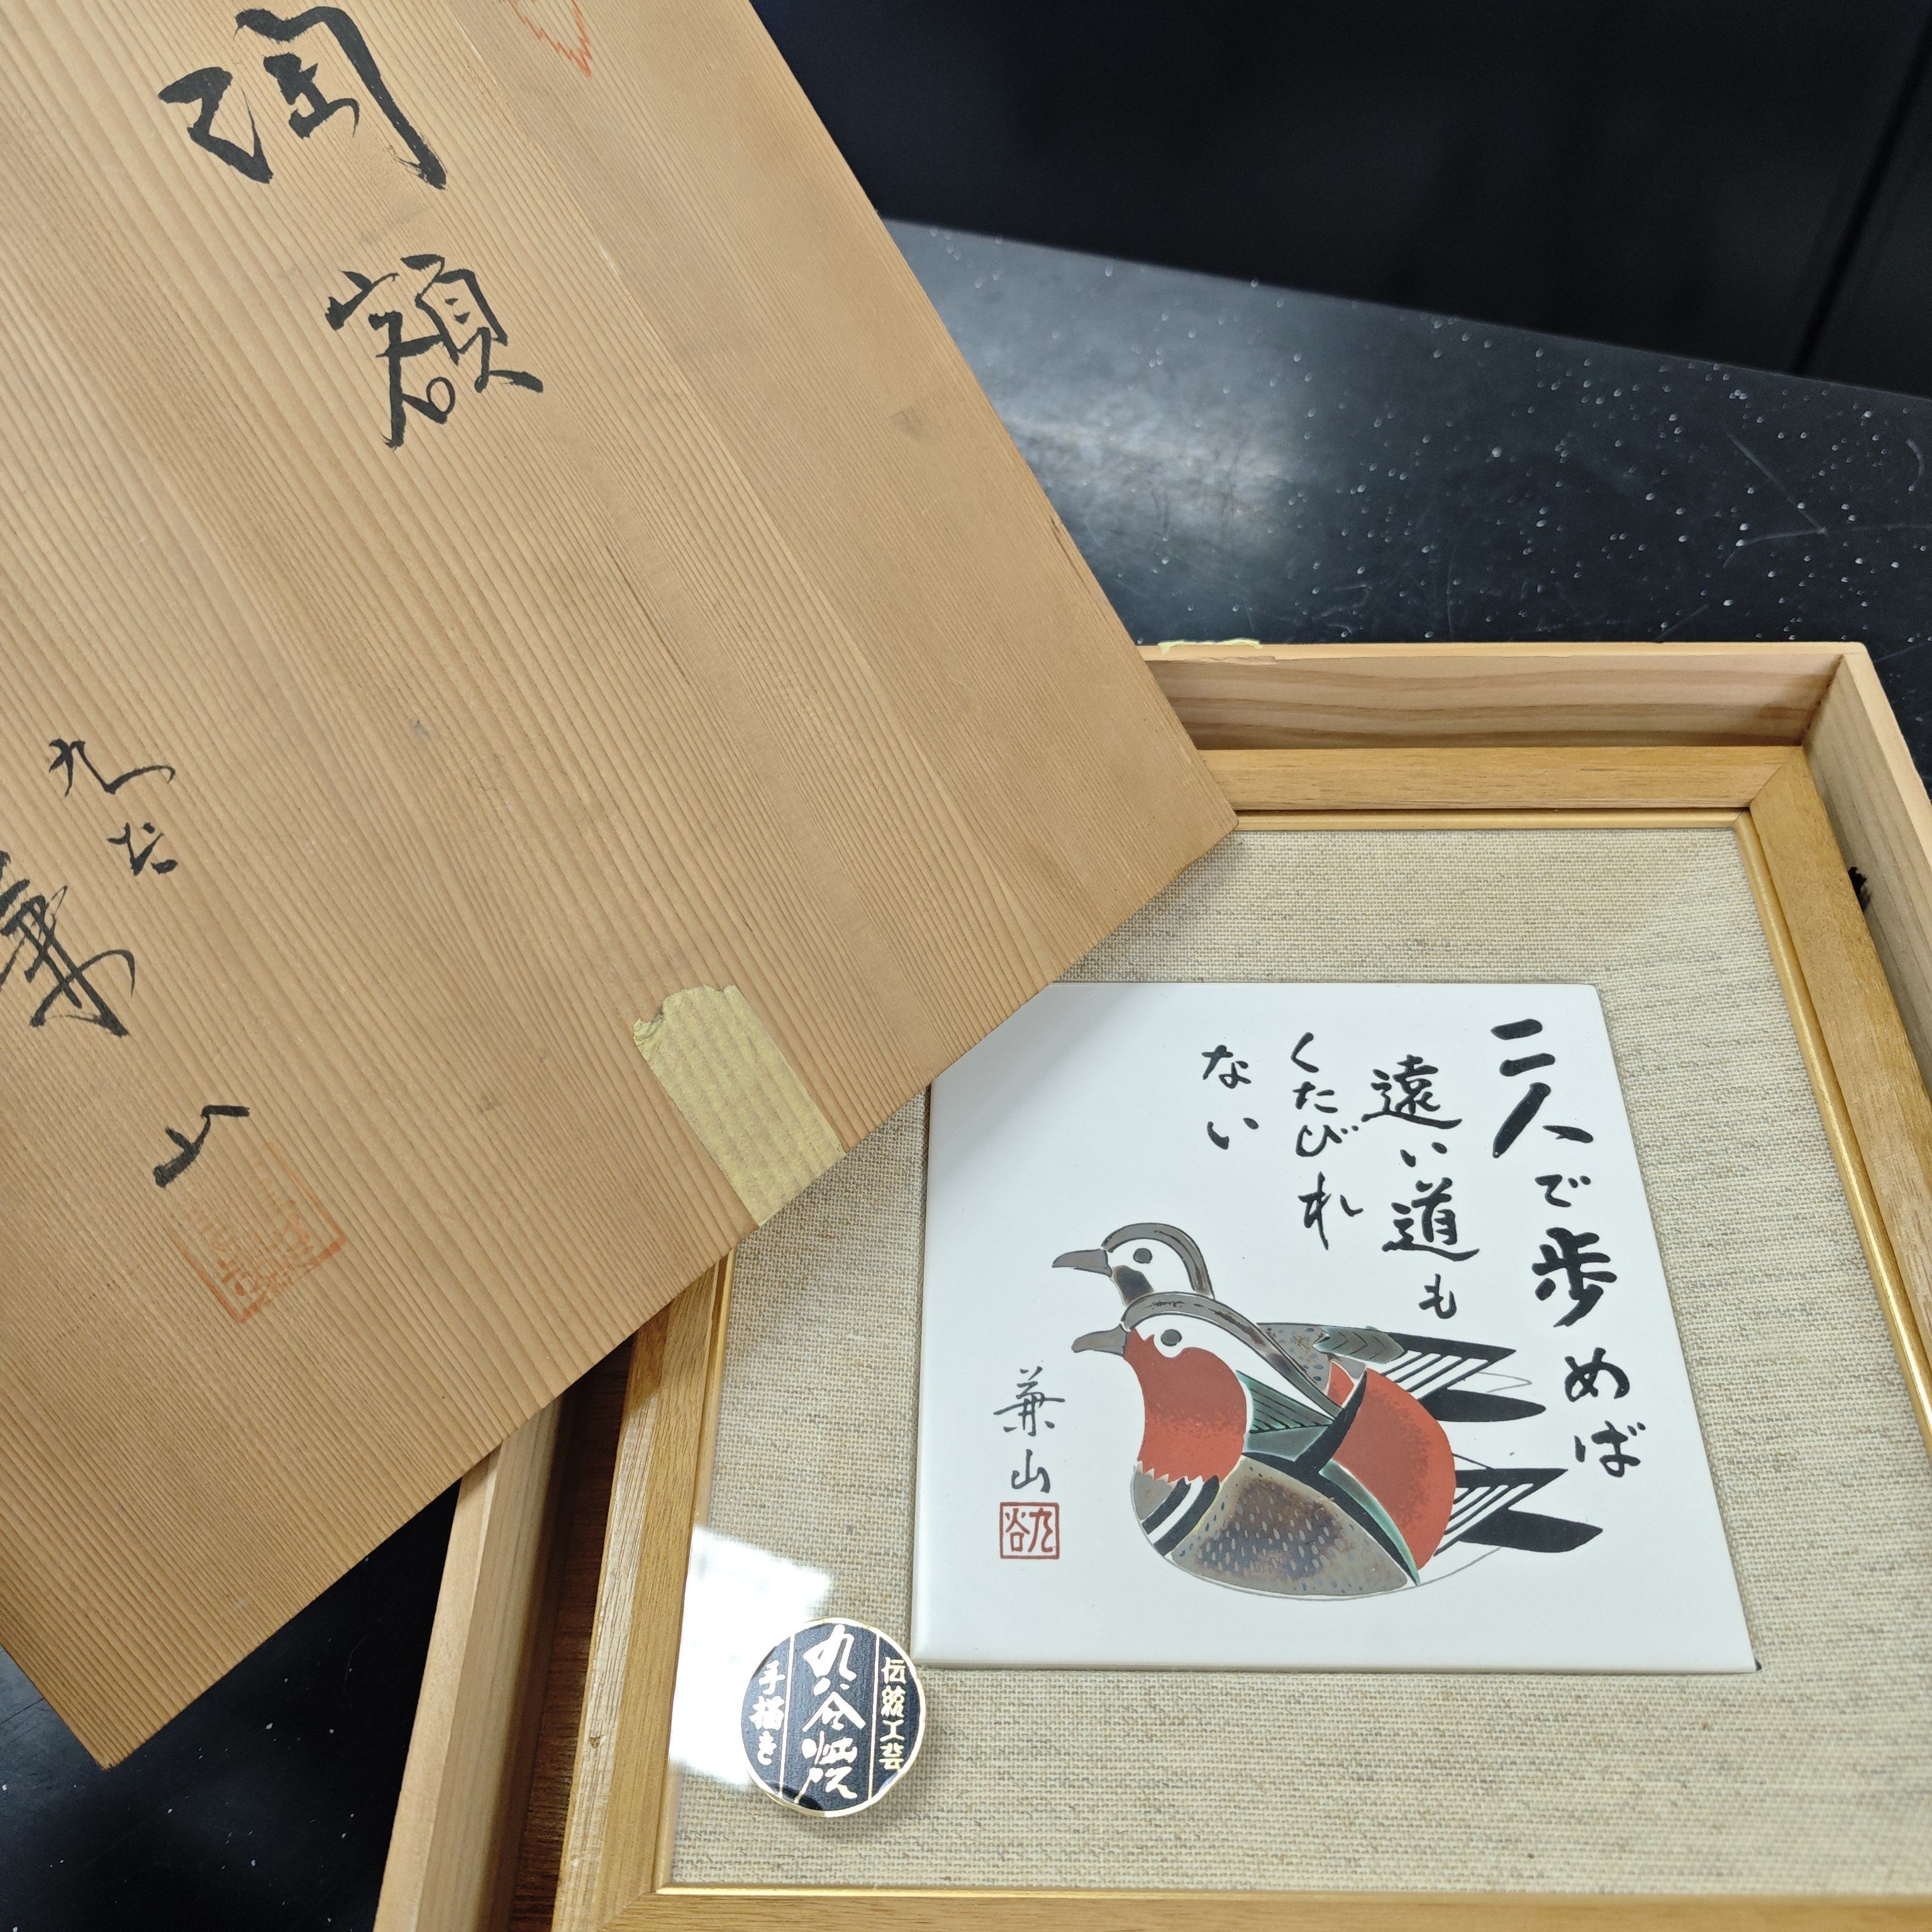 陶額
九谷
兼山
二人で歩めば
遠い道も
くたびれ
ない
兼山
九谷
伝統工芸
九谷焼
手描き